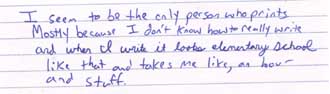 I seem to be the only person who prints
Mostly because I don't know how to really write
and when I write it looks elementary school
like that and takes me like, an hour
and stuff.